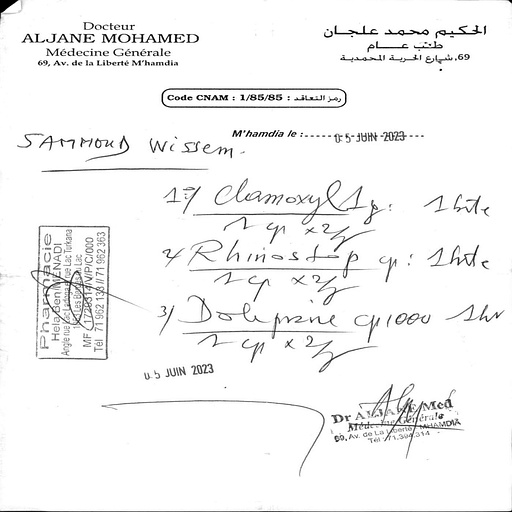 Docteur
ALJANE MOHAMED
Médecine Générale
69, Av. de la Liberté M'hamdia
الحكيم محمد علجان
طب عام
69، شارع الحرية المحمدية
Code CNAM : 1/85/85 : رمز التعاقد
M'hamdia le : 05 JUIN 2023
SAMMOUD Wissem.
1°/ Clamoxyl 1g : 1 bte
1 cp x 2/j
2/ Rhinostop cp : 1 bte
1 cp x 2/j
3/ Doliprane cp 1000 1 bte
1 cp x 2/j
Pharmacie
Hela Ben
Angle rue Lac et rue Lac Turkana
Les Berges du Lac
MF /V/P/C/000
Tél 71 962 133 // 71 962 363
05 JUIN 2023
Dr ALJANE Med
Médecine Générale
69, Av. de La Liberté MHAMDIA
Tél : 71.394.314